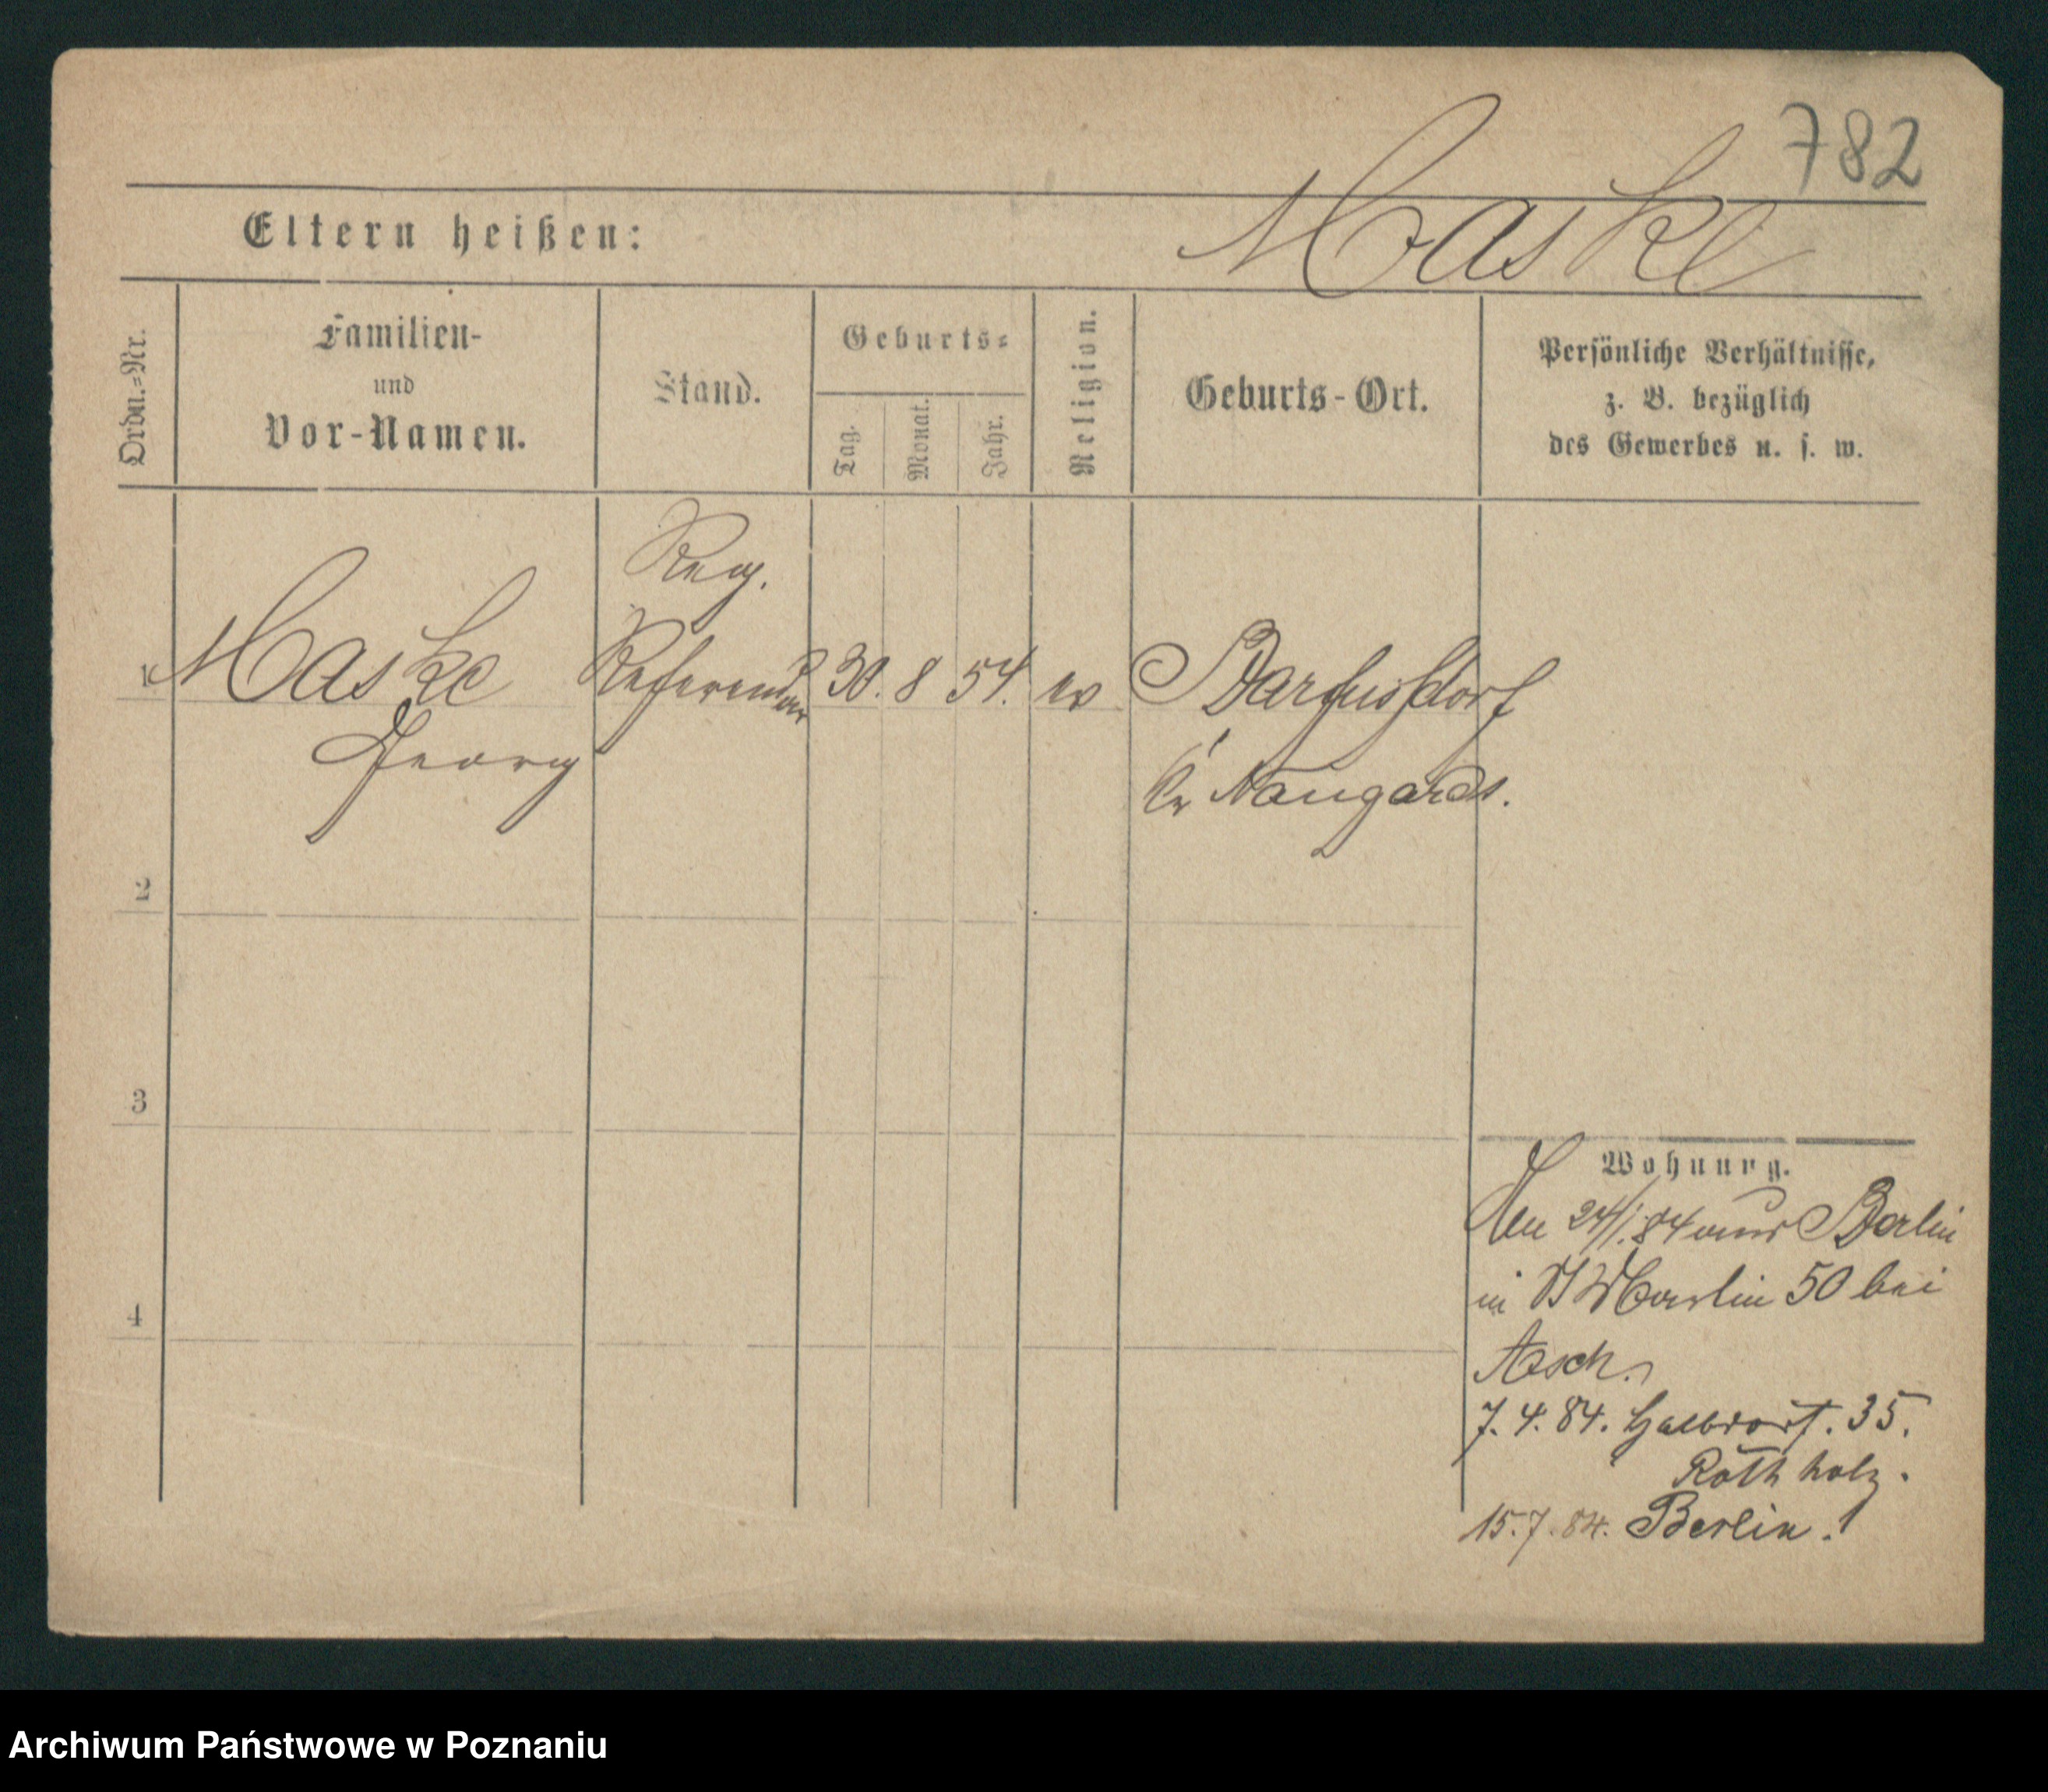 782
Maske
Eltern heißen:
Ordn.=Nr.
Familien-
und
Vor-Namen.
Stand.
Geburts=
Tag.
Monat.
Jahr.
Religion.
Geburts-Ort.
Persönliche Verhältnisse,
z. B. bezüglich
des Gewerbes u. s. w.
1 Maske Reg. Referendar 30. 8 54. ev Barfusdorf
Georg Kr Naugards.
2
3
4
Wohnung.
24/1.84 aus Berlin
in St Martin 50 bei
Asch.
7. 4. 84. Halbdorf. 35.
Rothholz.
15. 7. 84. Berlin.
Archiwum Państwowe w Poznaniu